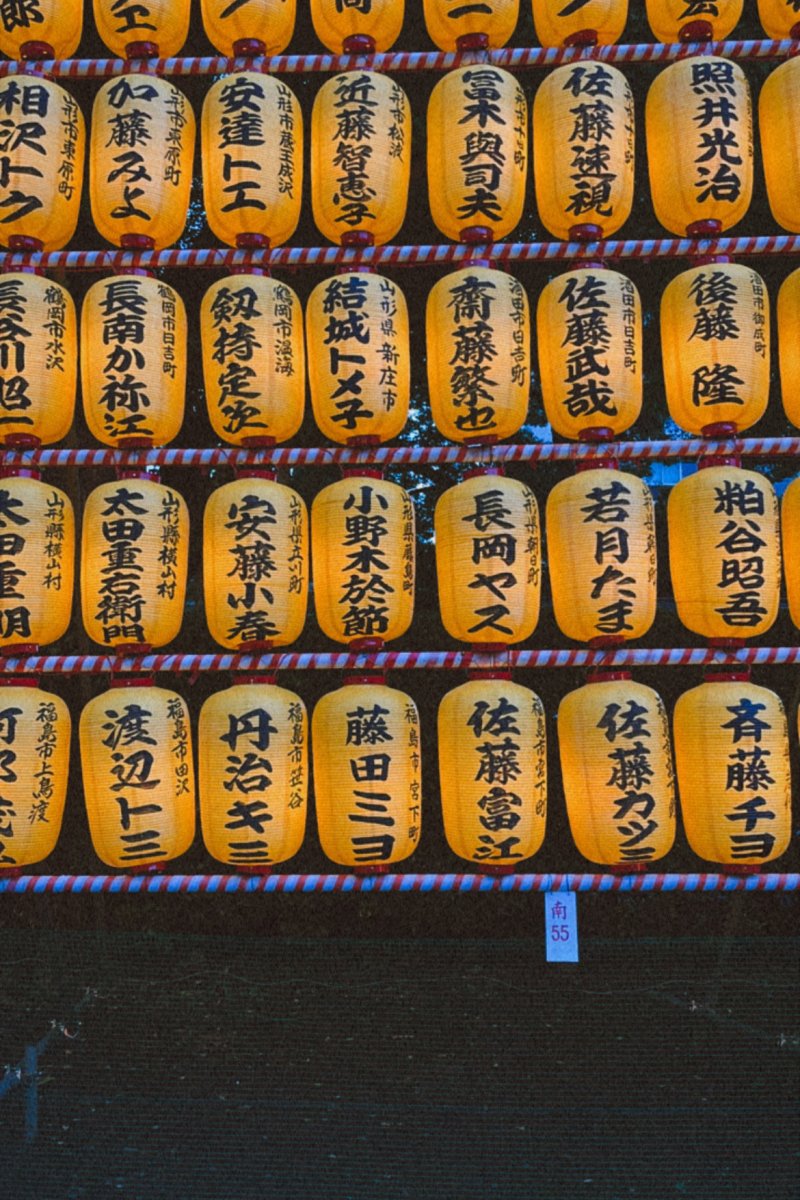 郎
相沢トク
山形市東原町
加藤みよ
山形市東原町
安達トエ
山形市蔵王成沢
近藤智恵子
山形市松波
冨木與司夫
佐藤速視
照井光治
長谷川昭一
鶴岡市水沢
長南か祢江
鶴岡市日吉町
剱持定次
鶴岡市温海
結城トメ子
山形県新庄市
齋藤繁也
酒田市日吉町
佐藤武哉
酒田市日吉町
後藤隆
酒田市御成町
太田重明
山形縣横山村
太田重右衛門
山形縣横山村
安藤小春
山形県立川町
小野木於節
長岡ヤス
山形県朝日町
若月たま
山形県朝日町
粕谷昭吾
福島市上鳥渡
渡辺トミ
福島市田沢
丹治キミ
福島市笹谷
藤田ミヨ
福島市宮下町
佐藤富江
福島市宮下町
佐藤カツミ
斉藤チヨ
南
55